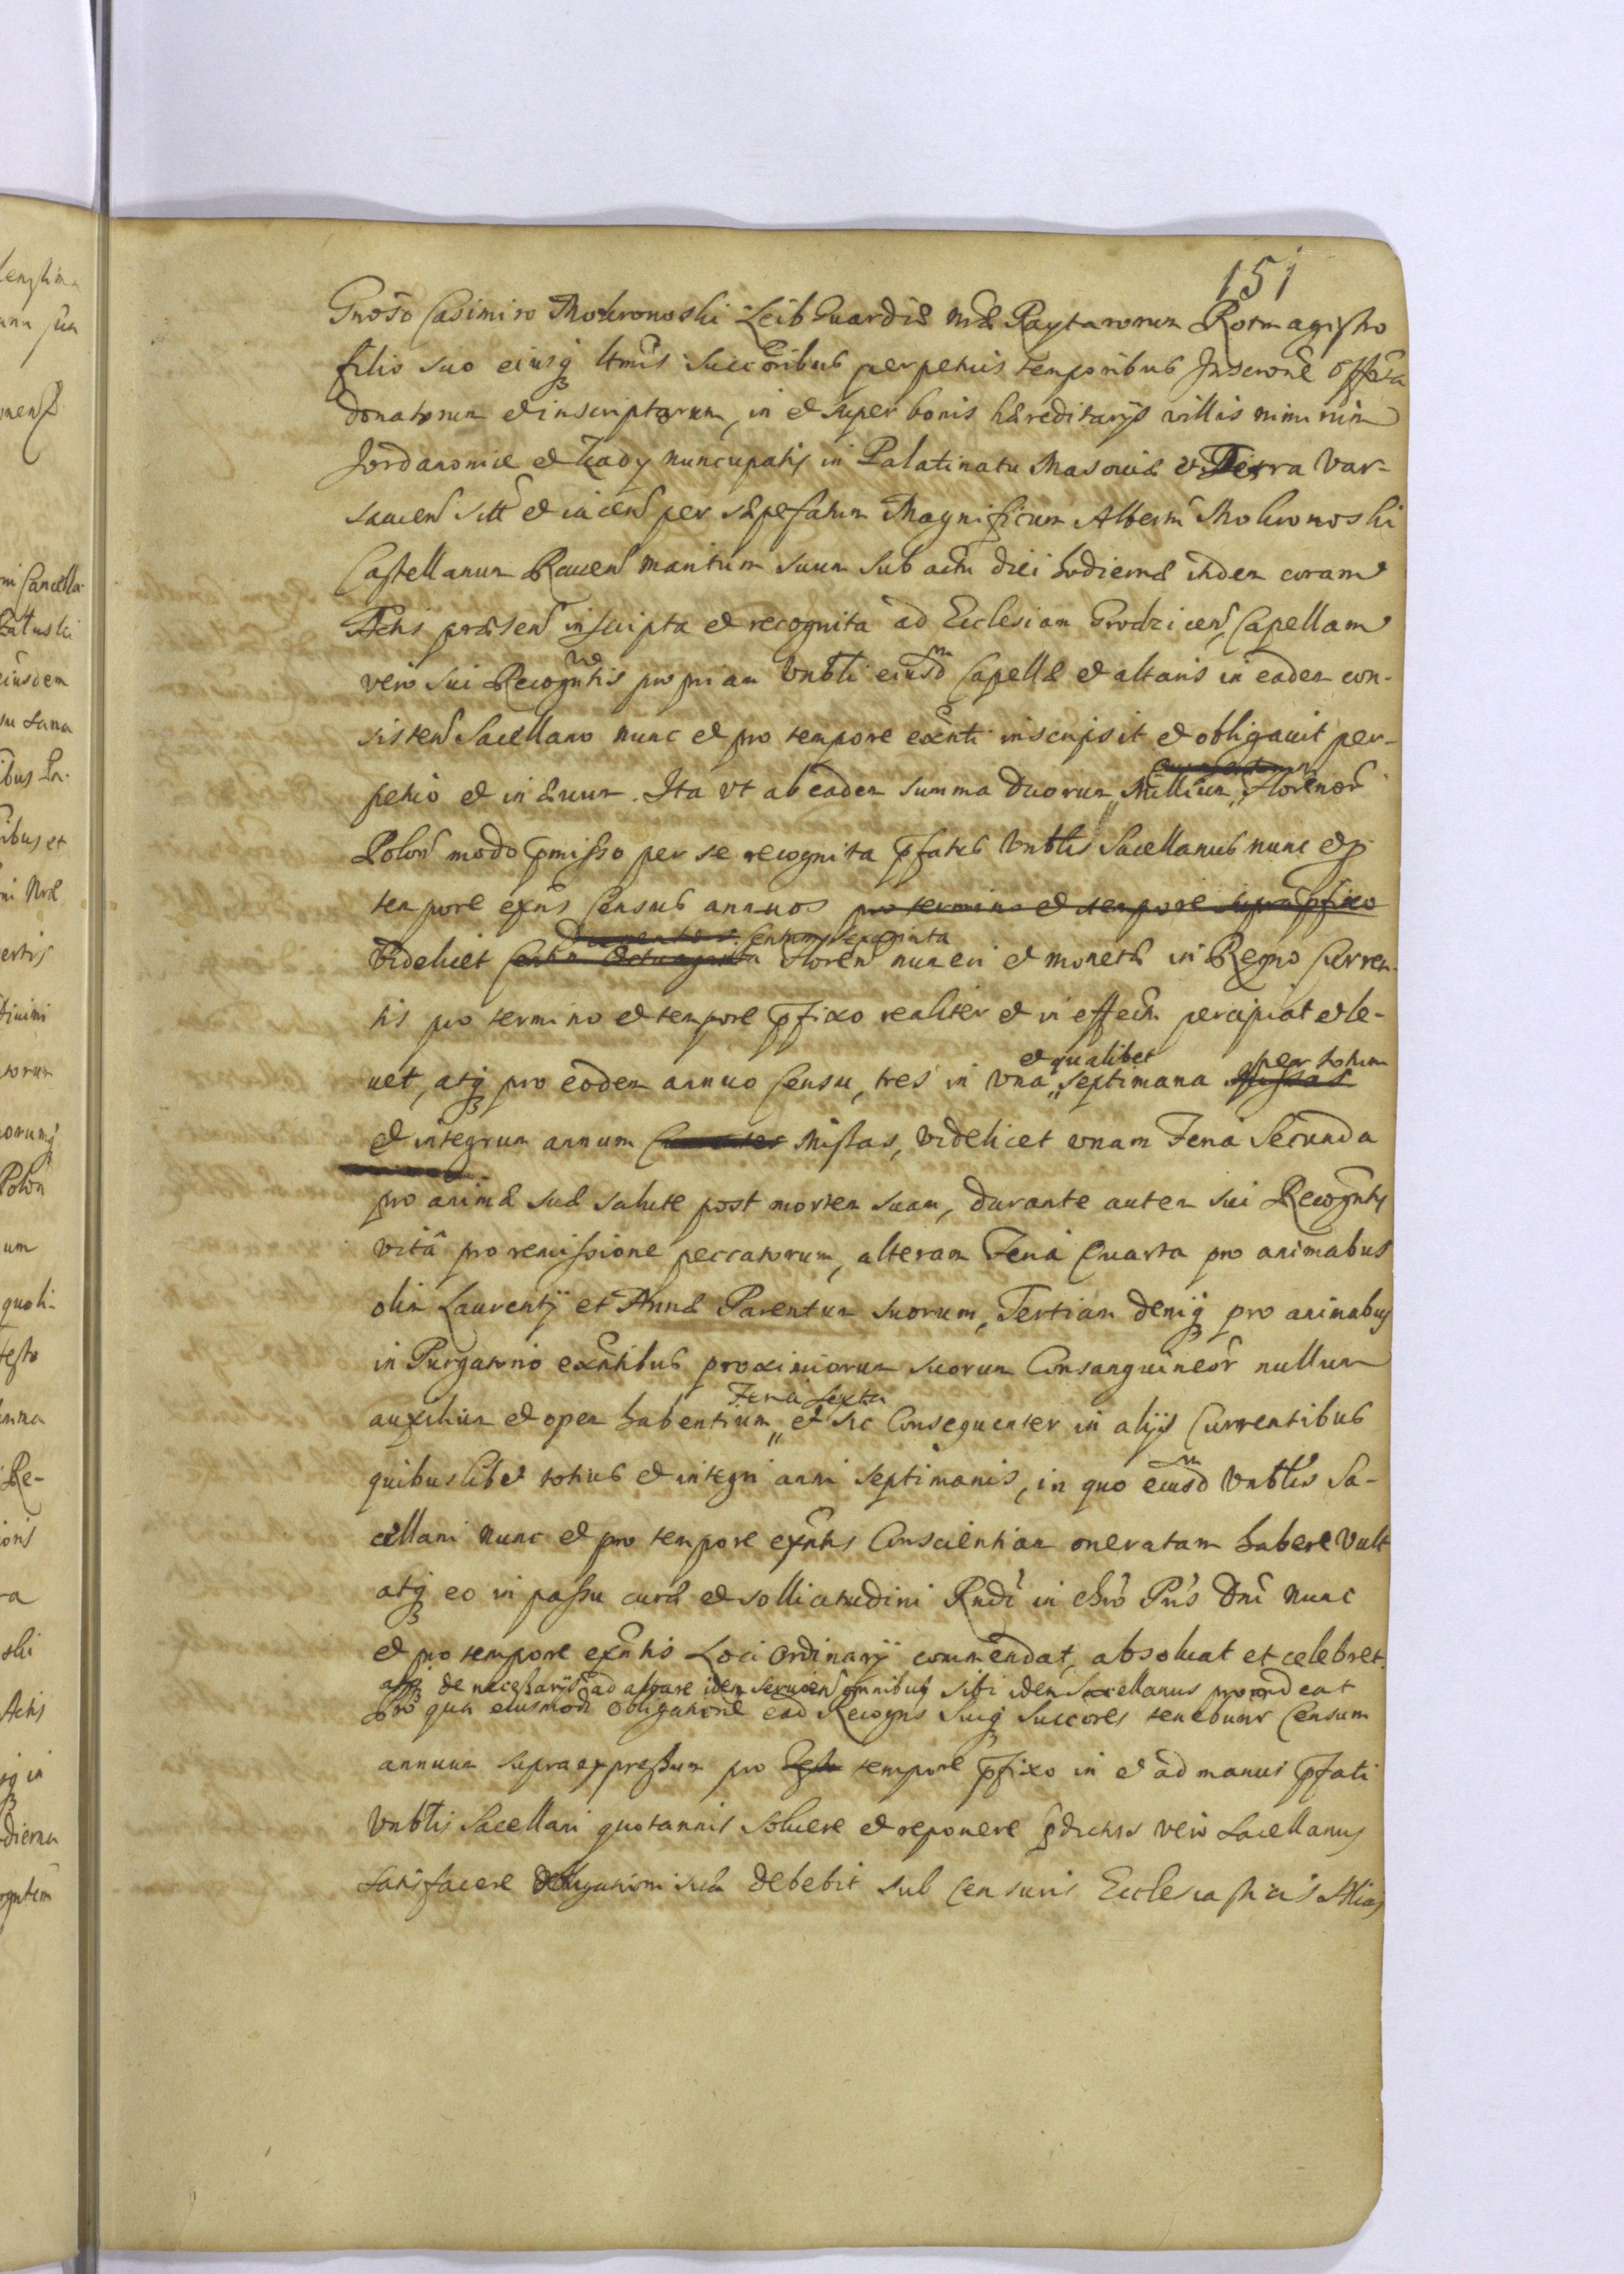 151
Gnoso Casimiro Mokronoski Leib Guardiæ nræ Raytarorum Rotmagistro
filio suo eiusq ltmis succoribus perpetuis temporibus Inscrone
donatorum et inscriptorum, in et super bonis hæreditarÿs villis nimirum
Jordanowice et Kady nuncupatis in Palatinatu Masoviæ et Terra Var-
saviens sitt et iacens per sæpefatum Magnificum Albertm Mokronoski
Castellanum Ravens maritum suum sub actu diei hodiernæ itidem coram
Actis præsens inscripta et recognita ad Ecclesiam Grodzicens, Capellam
vero sui Recogntis propriam Vnbli eiusdm Capellæ et altaris in eadem con-
sistens Sacellano nunc et pro tempore exnti inscripsit et obligavit per-
petuo et in ævum. Ita vt ab eadem summa Duorum Millium Florenor
Polon modo pmisso per se recognita pfatus Vnblis Sacellanus nunc et p
tempore exns Census annuos pro termino et tempore supra pfixo
Ducentos Centum sexaginta
Videlicet Centum Octuaginta floren numeri et monetæ in Regno Curren-
tis pro termino et tempore pfixo realiter et in effectu percipiat et le-
et qualibet per totum
uet, atq pro eodem annuo Censu, tres in vna septimana Missas
et integrum annum Missas, videlicet vnam Feria Secunda
pro animæ suæ salute post mortem suam, durante autem sui Recogntis
vitâ pro remissione peccatorum, alteram Feria Quarta pro animabus
olim Laurentÿ et Annæ Parentum suorum, Tertiam deniq pro animabus
in Purgatorio exntibus proximiorum suorum Consanguineor nullum
Feria sexta
auxilium et opem habentium et sic Consequenter in alÿs Currentibus
quibuslibet totius et integri anni septimanis, in quo eiusdm Vnblis Sa-
cellani nunc et pro tempore exntis Conscientiam oneratam habere vult
atq eo in passu curæ et sollicitudini Rndi in Chro Pris Dni nunc
et pro tempore exntis Loci Ordinarÿ commendat, absoluat et celebret.
atq de necessarÿs ad altare idem seruiens omnibus sibi idem Sacellanus prouideat
Pro qua eiusmodi Obligatione ead Recogns suiq Succores tenebunr Censum
annuum supraexpressum pro tempore pfixo in et ad manus pfati
Vnblis Sacellani quotannis soluere et reponere pdictus vero Sacellanus
satisfacere obligationi suæ debebit sub Censuris Ecclesiasticis Alias